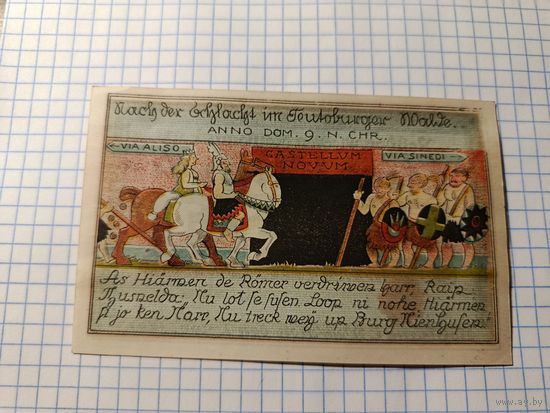 Nach der Schlacht im Teutoburger Walde.
ANNO DOM. 9. N. CHR.
VIA ALISO
CASTELLUM
NOVUM
VIA SINEDI
As Hiärmen de Römer verdriwen harr, Raip
Thusnelda: "Nu lot se susen Loop ni nohe, Hiärmen
jo ken Narr, Nu treck wey up Burg Nienhusen."
www.ay.by